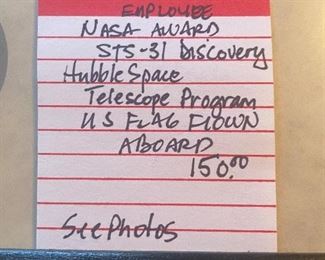 EMPLOYEE
NASA AWARD
STS-31 Discovery
Hubble Space
Telescope Program
US FLAG FLOWN
ABOARD
150.00
See Photos